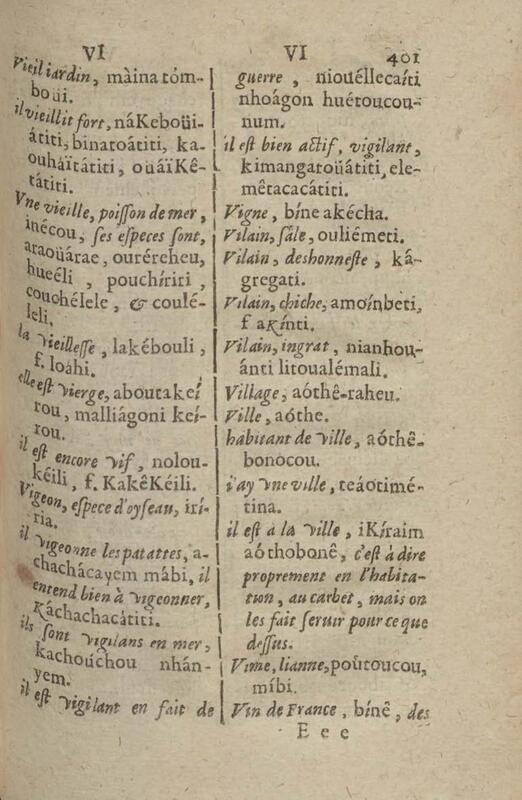 VI
Vieil iardin, màina tóm-
boüi.
il vieillit fort, náKeboüi-
átiti, binatoátiti, ka-
ouháïtátiti, oüáïKê-
tátiti.
Vne vieille, poiſſon de mer,
inécou, ſes eſpeces ſont,
araoüárae, ouréreheu,
hueéli, pouchíriri,
couchélele, & coulé-
leli.
la vieilleſſe, lakébouli,
f. loáhi.
elle eſt vierge, aboutakeí
rou, malliágoni keí-
rou.
il eſt encore vif, nolou-
kéili, f. KakêKéili.
Vigeon, eſpece d'oyſeau, irí-
ria.
il vigeonne les patattes, a-
chachácayem mábi, il
entend bien à vigeonner,
Káchachacátiti.
ils ſont vigilans en mer,
kachoúchou nhán-
yem.
il eſt vigilant en fait de
VI 401
guerre, niouéllecaíti
nhoágon huétoucou-
num.
il eſt bien actif, vigilant,
kimangaroüátiti, ele-
mêtacacátiti.
Vigne, bíne akécha.
Vilain, ſâle, ouliémeti.
Vilain, deshonneſte, ká-
gregati.
Vilain, chiche, amoínbeti,
f aKínti.
Vilain, ingrat, nianhou-
ánti litoualémali.
Village, aóthê-raheu.
Ville, aóthe.
habitant de ville, aóthê-
bonocou.
i'ay vne ville, teáotimé-
tina.
il eſt a la ville, iKíraim
aóthobonê, c'eſt à dire
proprement en l'habita-
tion, au carbet, mais on
les fait ſeruir pour ce que
deſſus.
Vime, lianne, poûtoucou,
míbi.
Vin de France, bínê, des
E e e